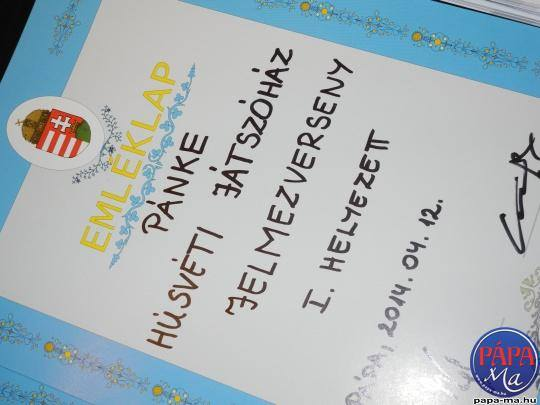 EMLÉKLAP
PÁNKE
HÚSVÉTI JÁTSZÓHÁZ
JELMEZVERSENY
I. HELYEZETT
PÁPA, 2014.04.12.
PÁPA
Ma
www.papa-ma.hu
papa-ma.hu